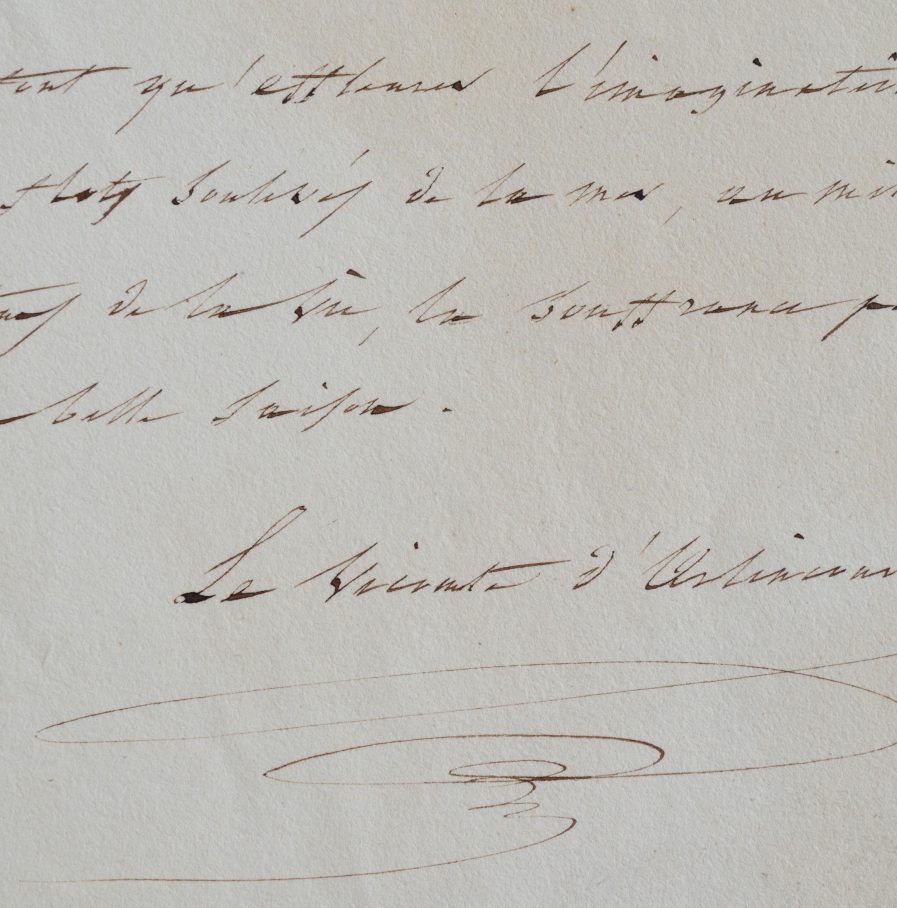 font qu'effleurer l'imaginati
flots soulevés de la mer, au mi
de la vie, la souffrance p
belle saison.
Le Vicomte d'Arlincour